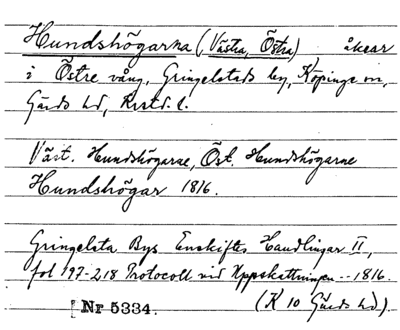 Hundshögarna (Västra, Östra) åkrar
i Östre vång, Gringelstads by, Köpinge sn,
Gärds hd, Krstd. l.
Väst. Hundshögarne, Öst. Hundshögarne
Hundshögar 1816.
Gringelsta Bys Enskiftes Handlingar II,
fol 197-218 Protocoll vid Uppskattningen -- 1816.
(K 10 Gärds hd).
Nr 5334.